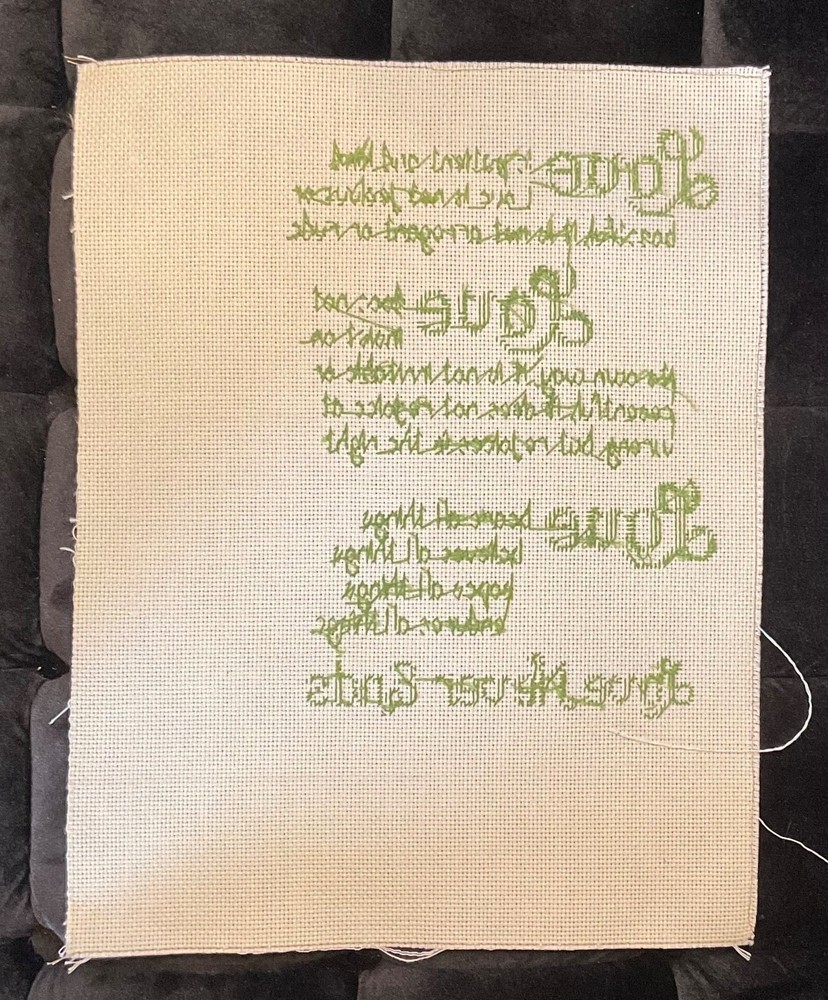 Love is patient and kind
Love is not jealous or
boastful it is not arrogant or rude
Love does not
insist on
its own way it is not irritable or
resentful it does not rejoice at
wrong but rejoices in the right
Love bears all things
believes all things
hopes all things
endures all things
Love Never Fails